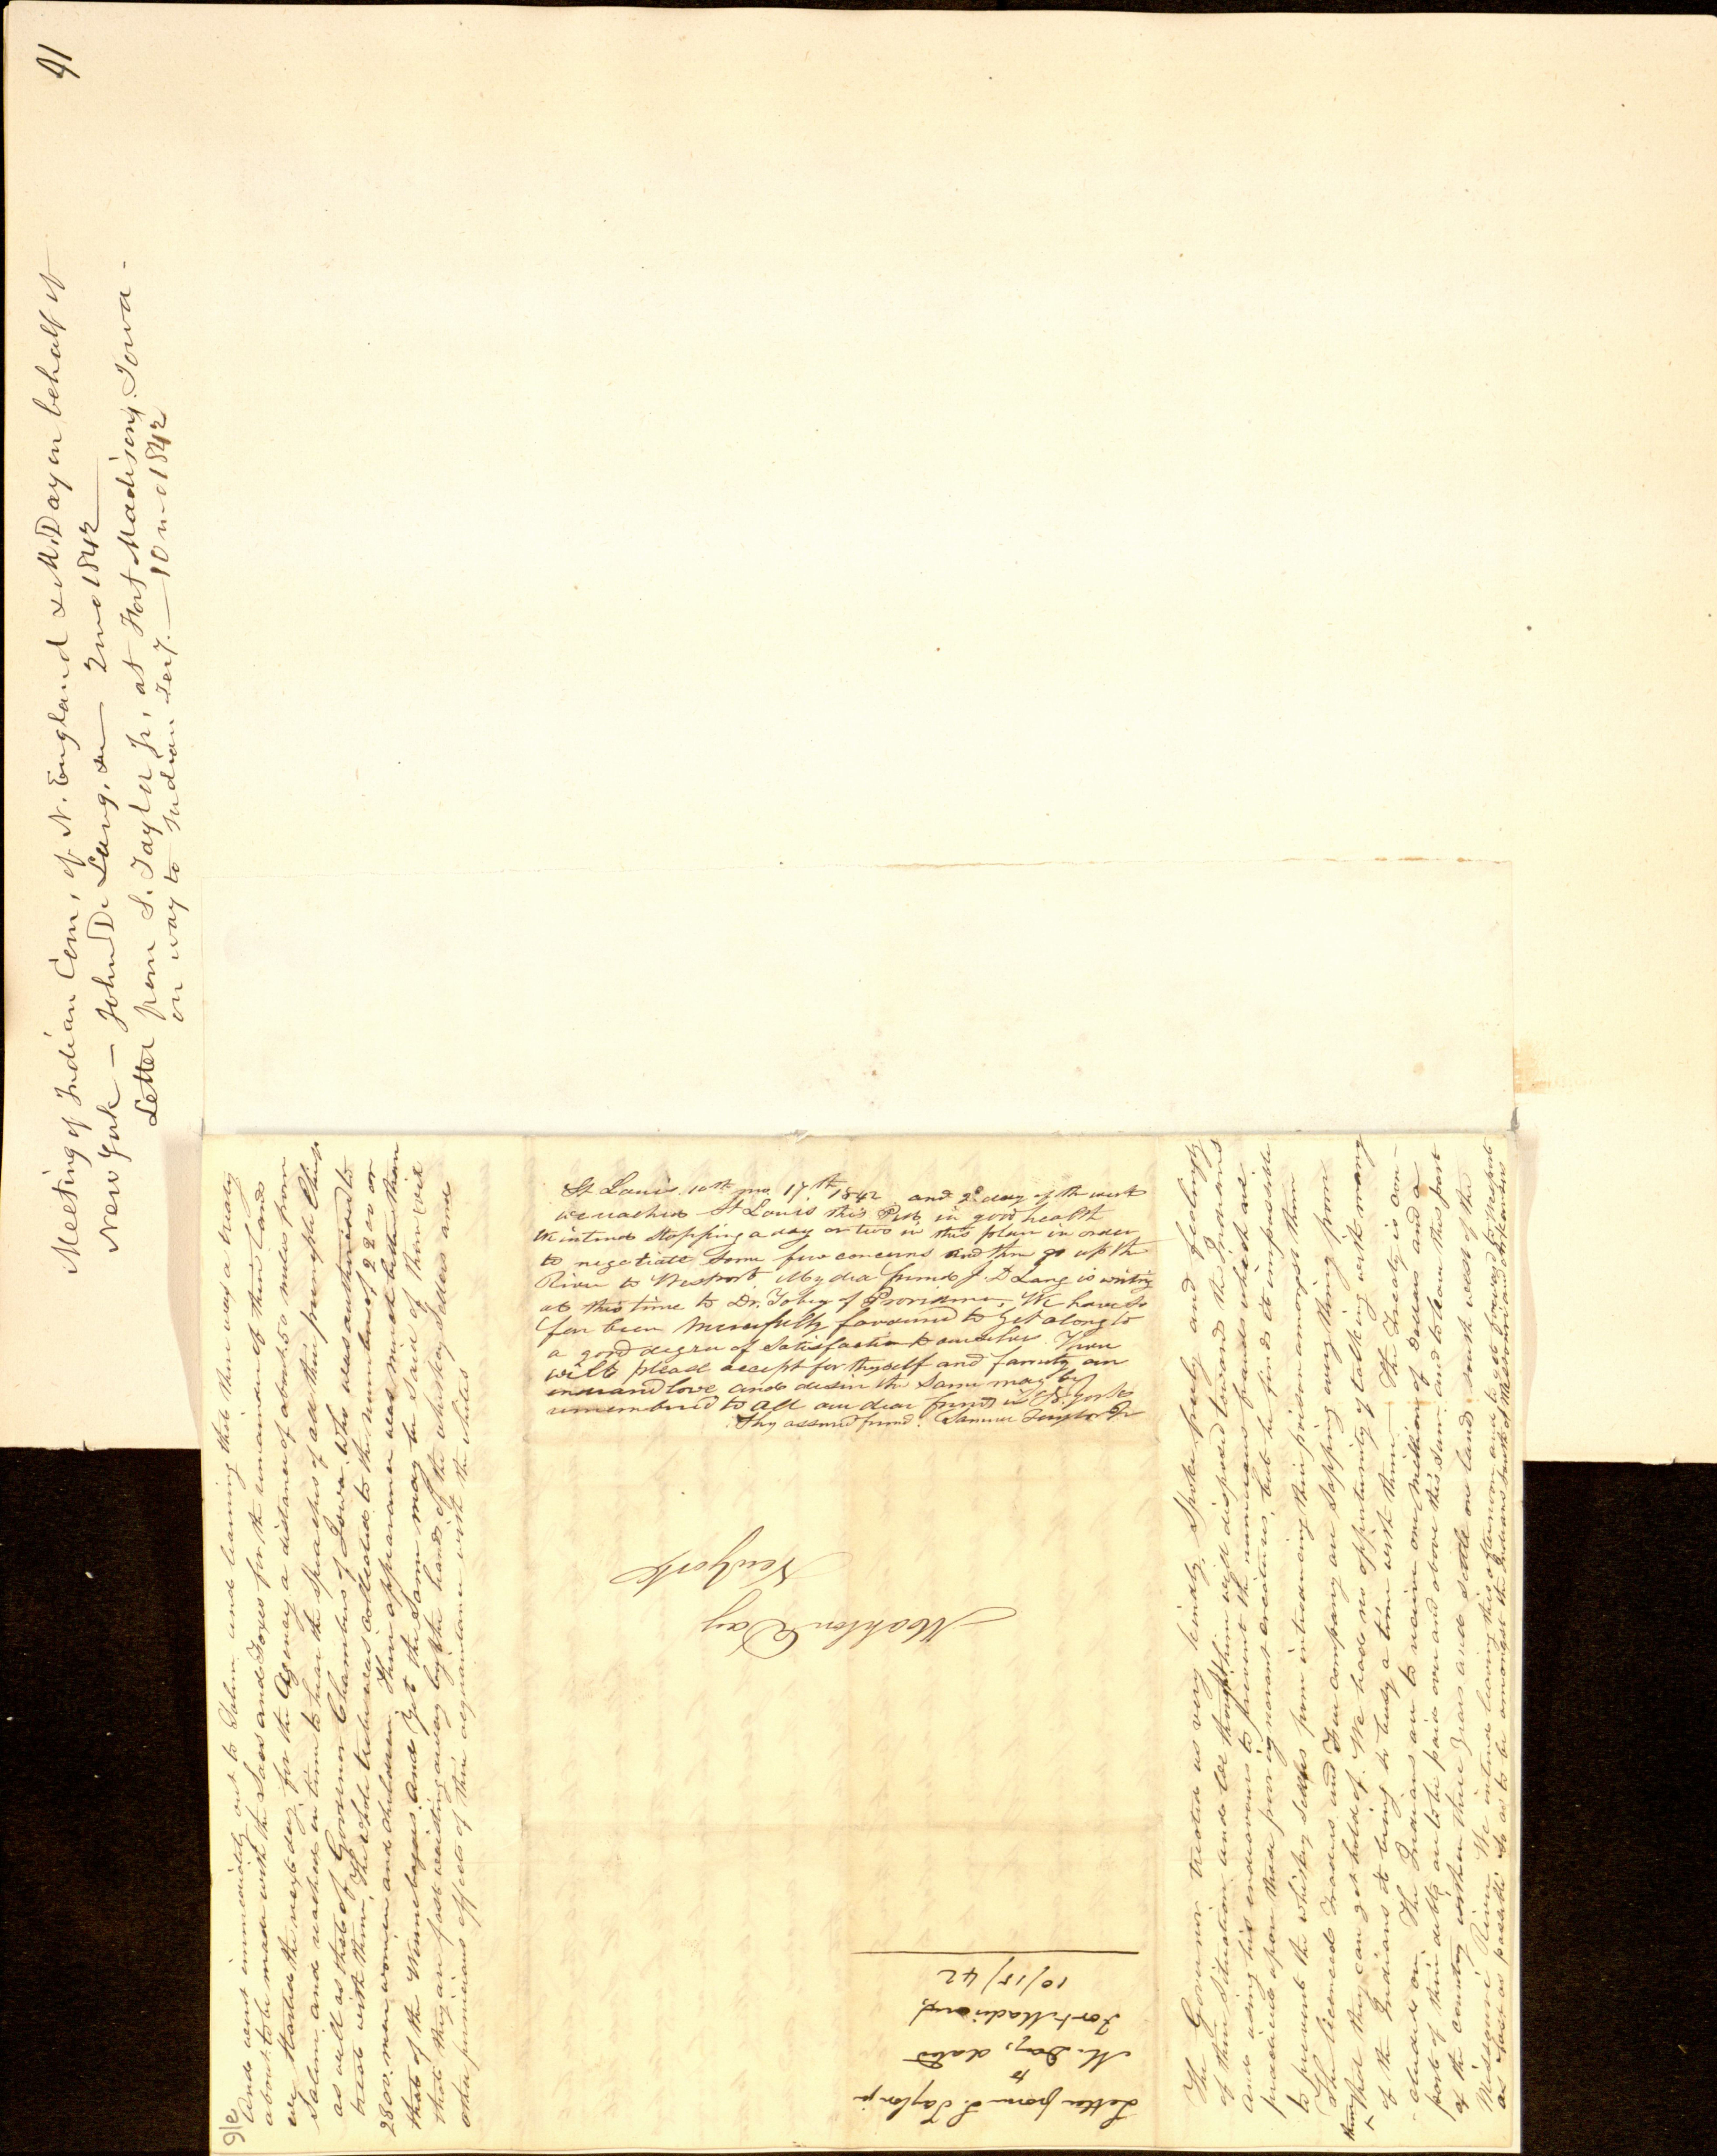 91
Meeting of Indian Com, of N. England & M. Day on behalf of
New York — John D. Lang, &c — 2 mo 1842
Letter from S. Taylor Jr, at Fort Madison, Iowa -
on way to Indian Tery. — 10 mo 1842
91c
And went immediately out to Salem and learning that there was a treaty
about to be made with the Sacs and Foxes for the remainder of their land
we started the next day for the Agency a distance of about 50 miles from
Salem and reached in time to hear the speaches of all their principle Chiefs
as well as that of Governor Chambers of Iowa who was authorised to
treat with them, The whole tribe was collected to the number of 2200 or
2300 men women and children. Their appearance was much better than
that of the Winnebagoes and yet the same may be said of them viz
that they are fast wasting away by the hands of the whiskey sellers and
other pernicious effects of their acquaintance with the whites
St Louis 10th mo 17th 1842 and 2d day of the week
we reached St Louis this P.M. in good health
We intend stopping a day or two in this place in order
to negotiate some few concerns and then go up the
River to Westport My dear friend J. D Lang is writing
at this time to Dr. Tobey of Providence, We have so
far been mercifully favoured to get along to
a good degree of satisfaction to ourselves. Thou
wilt please accept for thyself and family our
endeared love and desire the same may be
remembered to all our dear friends in N. York
Thy assured friend. Samuel Taylor Jr
Mahlon Day
New York
Letter from S. Taylor jr
to
M. Day, dated
Fort Madison,
10/15/42
The Governor treated us very kindly, spoke freely and feelingly
of their situation and we thought him well disposed toward the Indians
and using his endeavours to prevent the numerous frauds which are
practiced upon these poor ignorant creatures, but he finds it impossible
to prevent the whiskey sellers from introducing their poison amongst them
The licenced traders and Fur company are sapping every thing from
them that they can get hold of. We had no opportunity of talking with many
of the Indians it being so busy a time with them. — The Treaty is con-
-cluded on. The Indians are to receive one Million of Dollars and a
part of their debts are to be paid over and above this sum and to leave this part
of the country within three years and settle on lands south west of the
Missouri River. We intend leaving this afternoon and to go forward to Westport
as fast as possible so as to be amongst the Indians south of Missouri and Arkansas